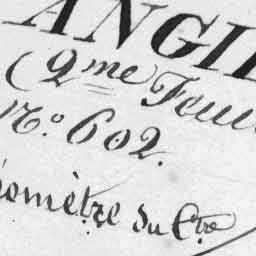 ANGI
(2me Feui
No. 602.
omètre du Ctre